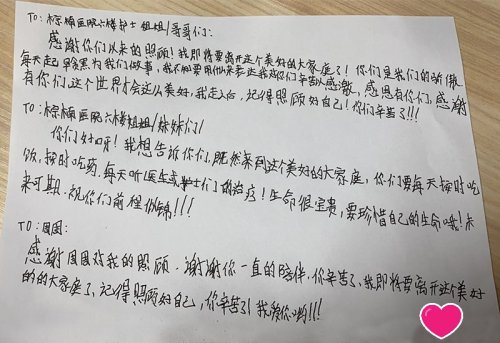 TO:棕榈医院六楼护士姐姐/哥哥们:
感谢你们以来的照顾!我即将要离开这个美好的大家庭了!你们是我们的骄傲,
每天起早贪黑为我们做事,我不知要用什么来表达我对你们辛苦的感激,感恩有你们,感谢
有你们,这个世界才会这么美好,我走以后,记得照顾好自己!你们辛苦了!!!
TO:棕榈医院六楼姐姐/妹妹们/
你们好呀!我想告诉你们,既然来到这个美好的大家庭,你们要每天按时吃
饭,按时吃药,每天听医生或护士们的治疗!生命很宝贵,要珍惜自己的生命哦!未
来可期,祝你们前程似锦!!!
TO:周周:
感谢周周对我的照顾,谢谢你一直的陪伴,你辛苦了,我即将要离开这个美好
的的大家庭了,记得照顾好自己,你辛苦了!我爱你哟!!!